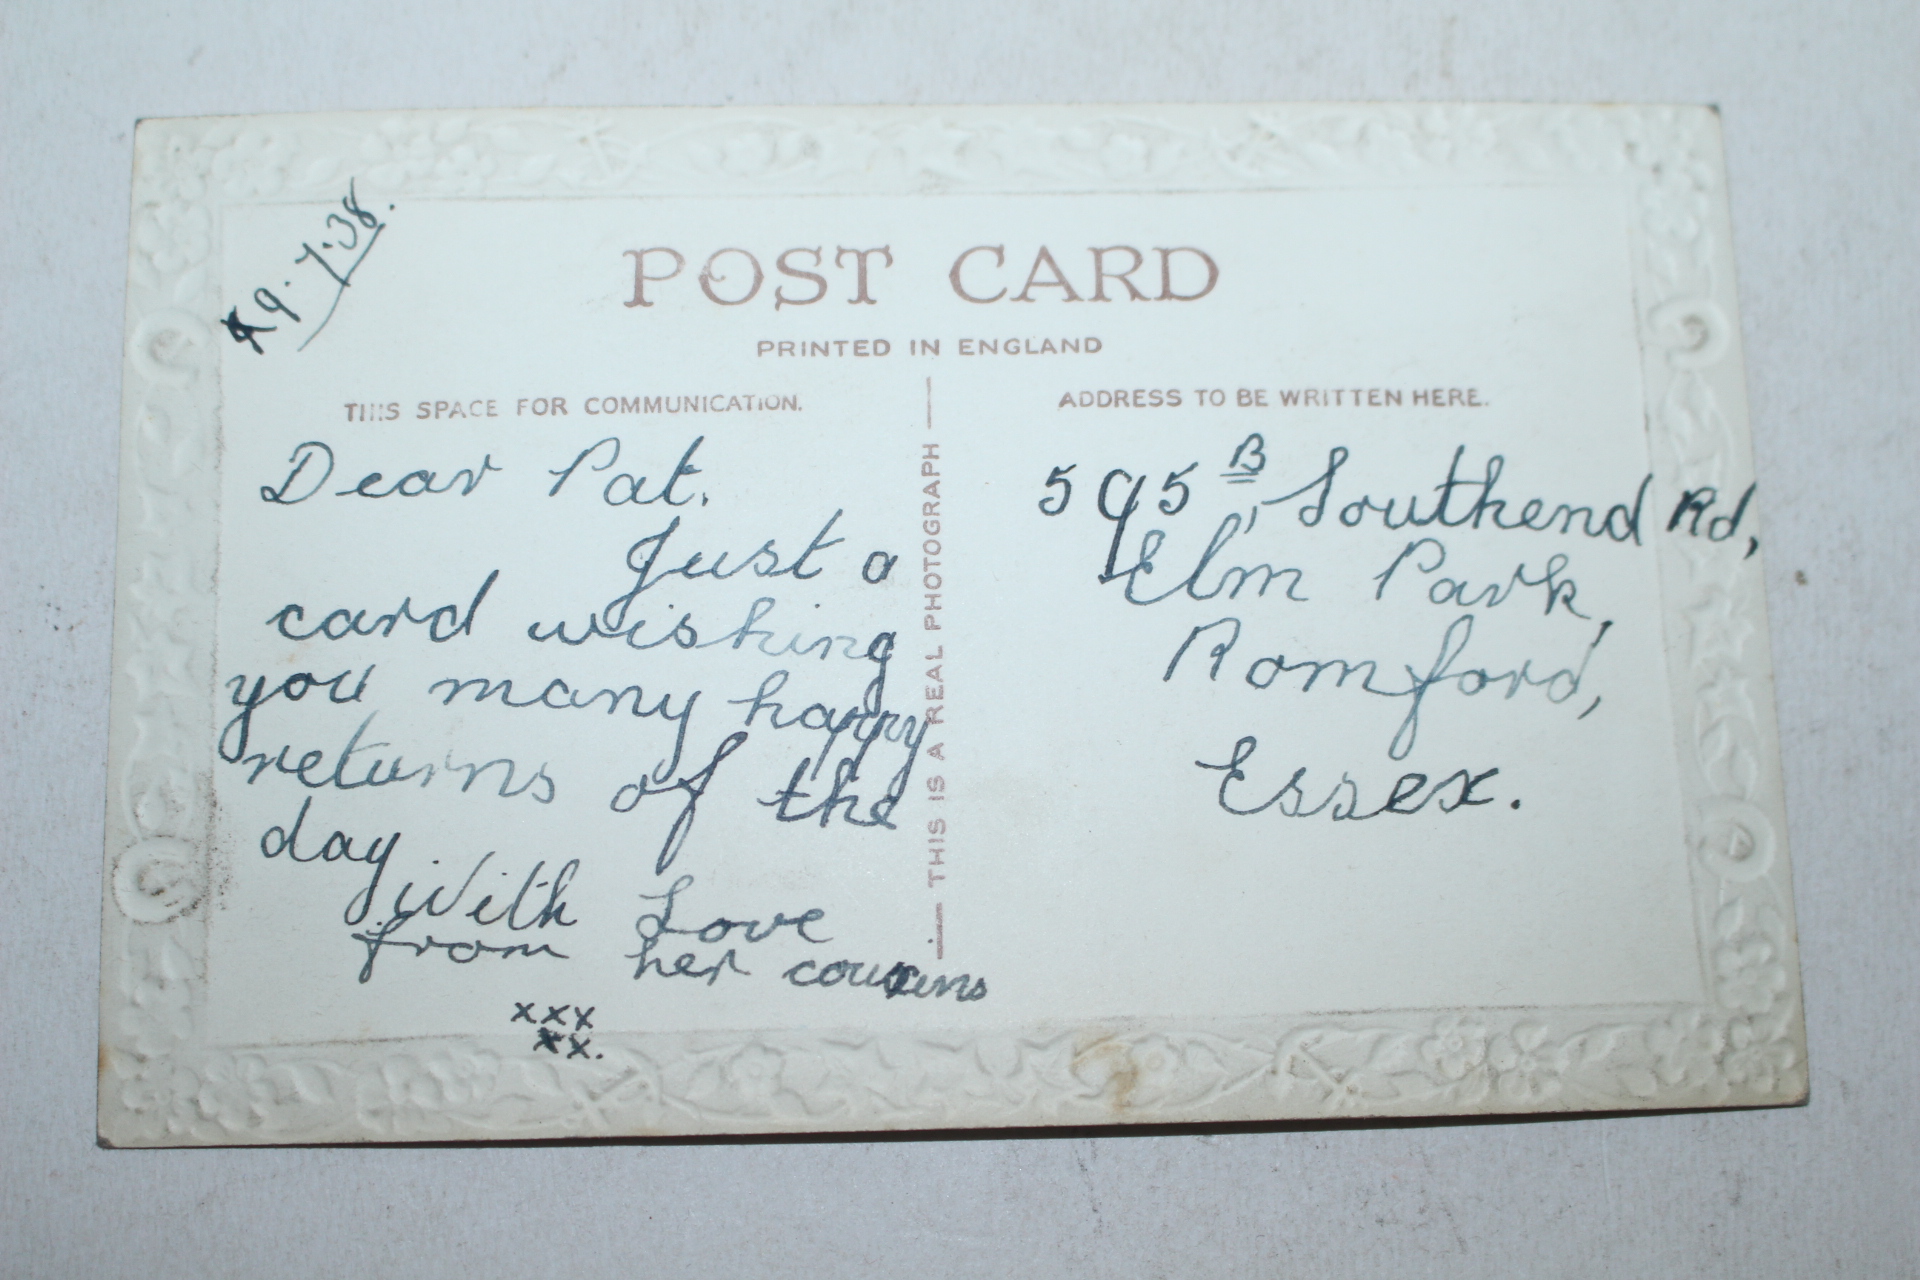 9.7.38.
POST CARD
PRINTED IN ENGLAND
THIS SPACE FOR COMMUNICATION.
Dear Pat.
Just a
card wishing
you many happy
returns of the
day.
With Love
from her cousins
xxx
xx.
THIS IS A REAL PHOTOGRAPH
ADDRESS TO BE WRITTEN HERE.
595B, Southend Rd,
Elm Park,
Romford,
Essex.